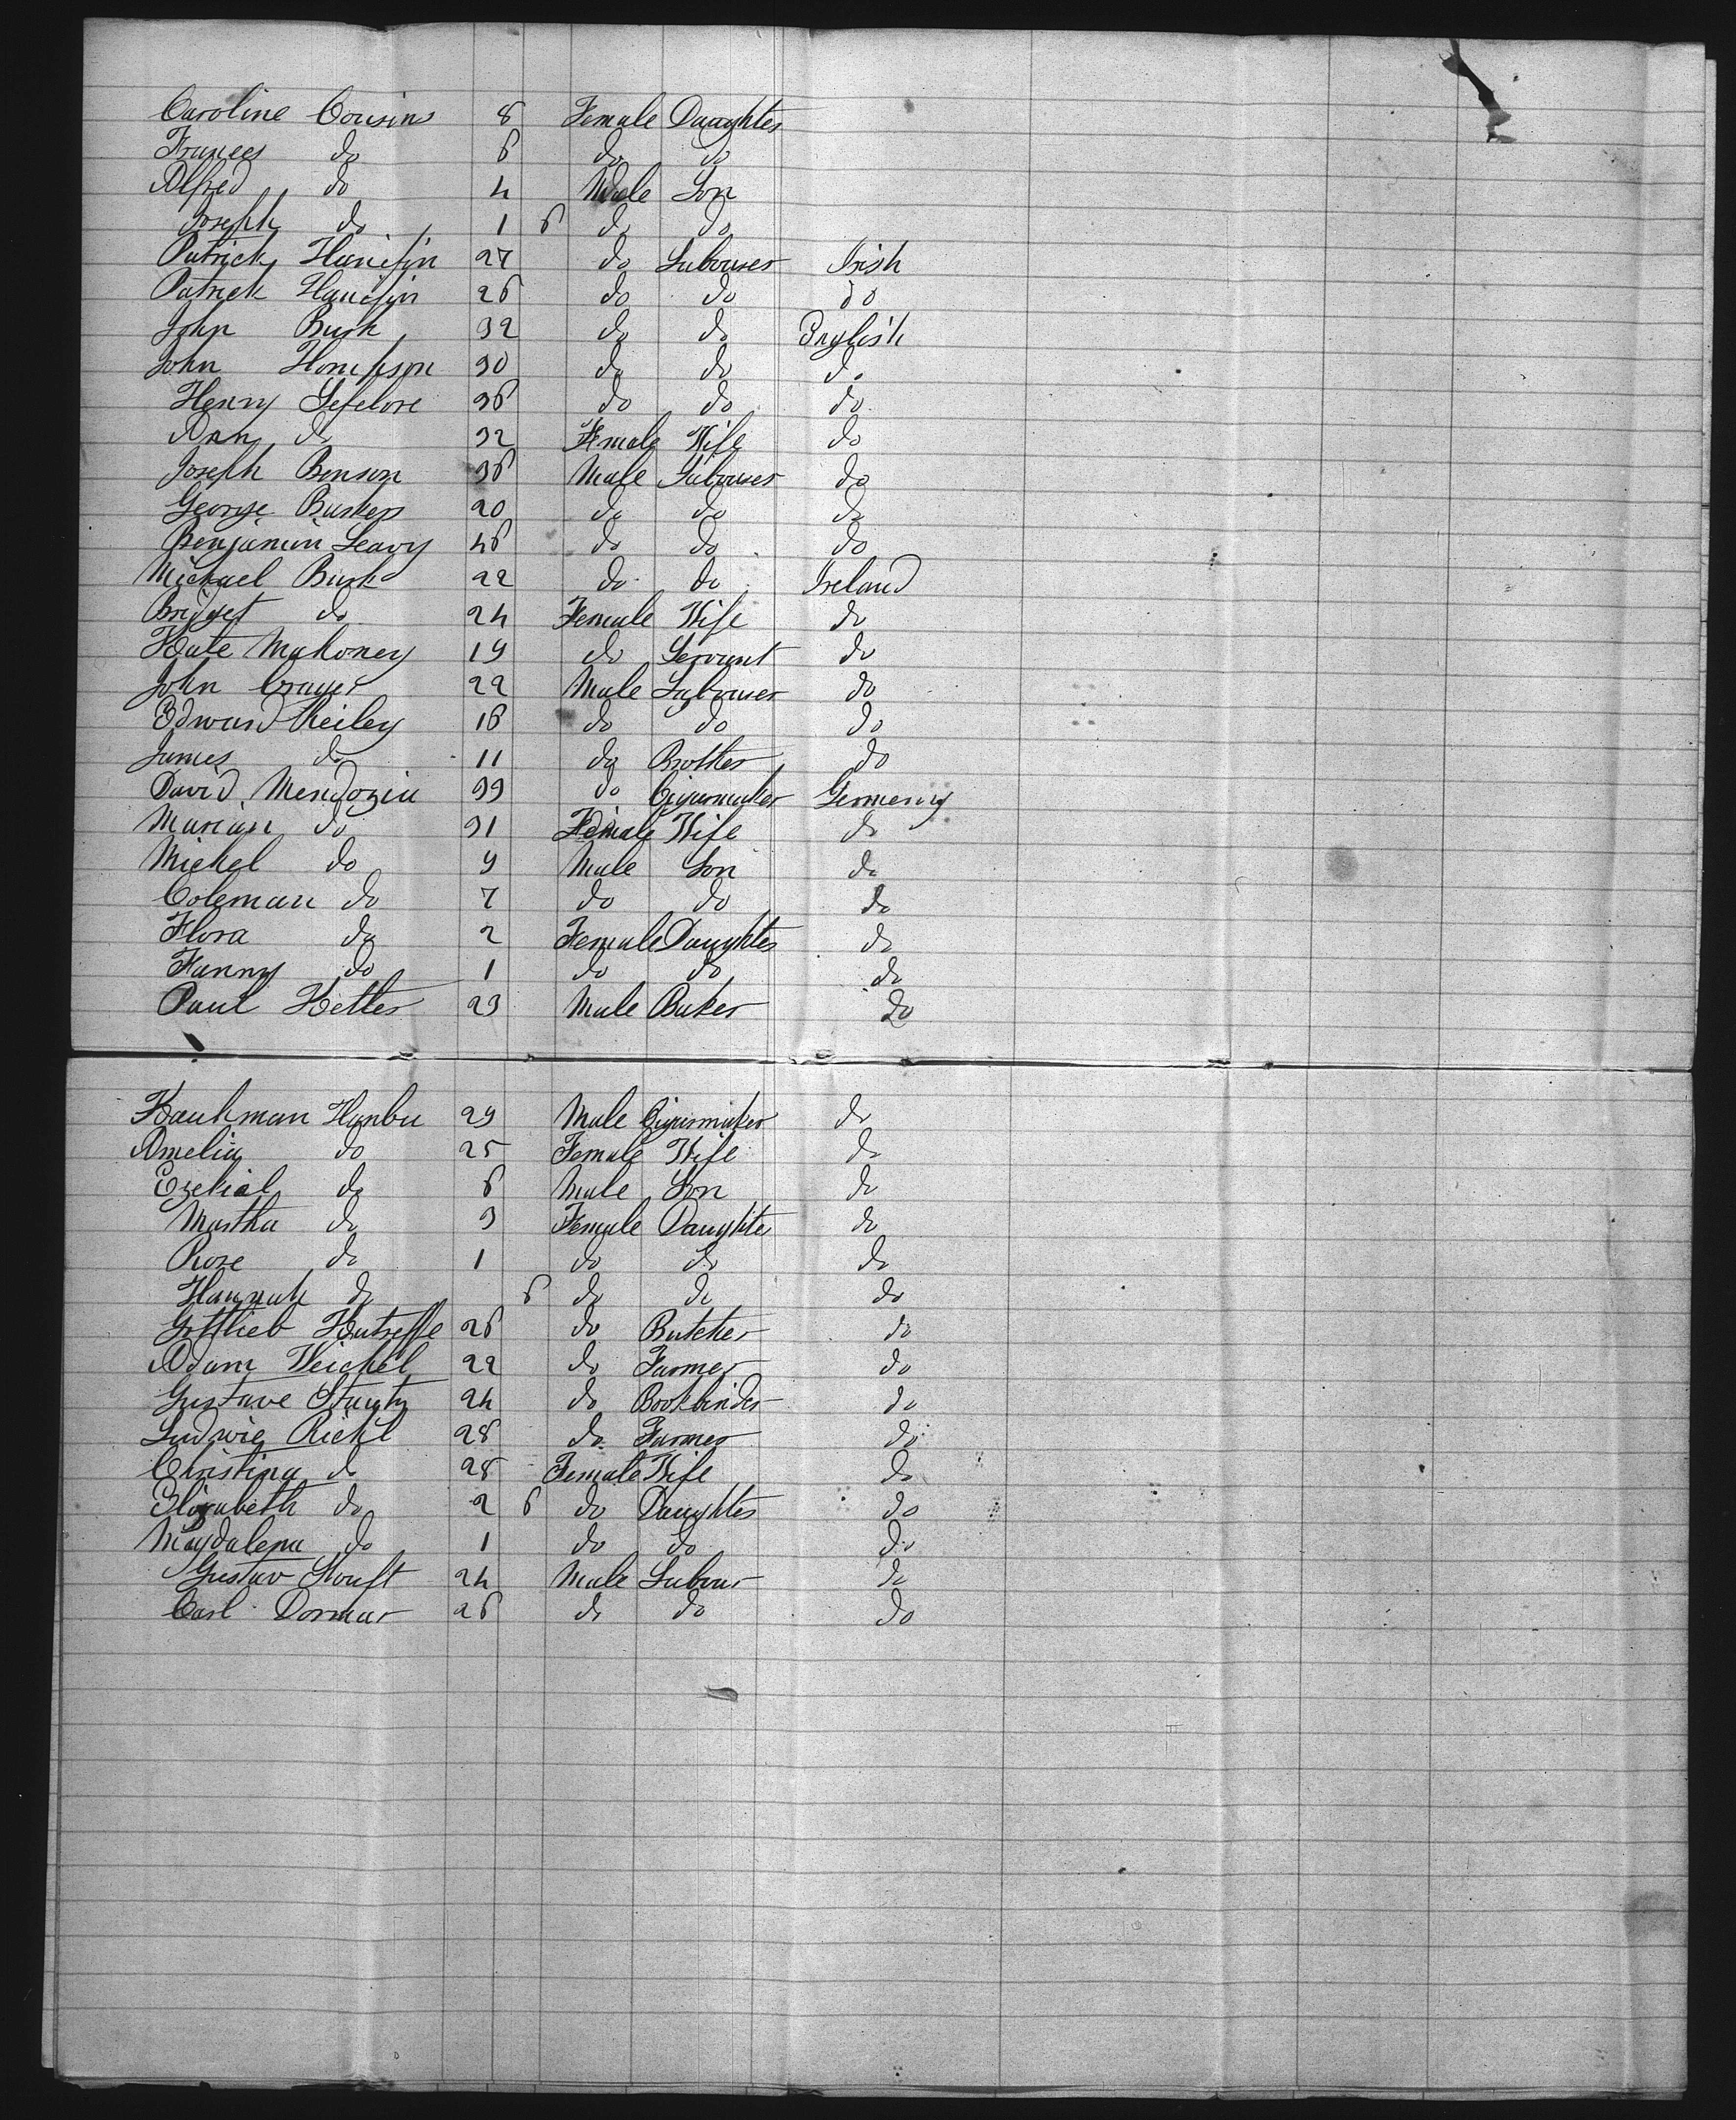 Caroline Cousins 8 Female Daughter
Frances do 6 do do
Alfred do 4 Male Son
Joseph do 1 6 do do
Patrick Hanifin 27 do Labourer Irish
Patrick Hanifin 26 do do do
John Bush 32 do do English
John Thompson 30 do do do
Henry Lefelore 36 do do do
Ann do 32 Female Wife do
Joseph Benson 36 Male Labourer do
George 20 do do do
Benjamin Leavy 46 do do do
Michael Burk 22 do do Ireland
Bridget do 24 Female Wife do
Kate Mahoney 19 do Servant do
John 22 Male Labourer do
Edward Reiley 16 do do do
James do 11 do Brother do
David Mendozia 33 do Cigarmaker Germeny
Marian do 31 Female Wife do
Michel do 9 Male Son do
Coleman do 7 do do do
Flora do 2 Female Daughter do
Fanny do 1 do do do
Paul Ketter 23 Male Baker do
Kauhman Hanbu 29 Male Cigarmaker do
Amelia do 25 Female Wife do
Ezekial do 6 Male Son do
Martha do 3 Female Daughter do
Rose do 1 do do do
Hannah do 6 do do do
Gottlieb 26 do Butcher do
Adam Weichel 22 do Farmer do
Gustave 24 do Bookbinder do
Ludwig Riehl 28 do Farmer do
Christina do 28 Female Wife do
Elizabeth do 2 6 do Daughter do
Magdalena do 1 do do do
Gustav 24 Male Labour do
Carl Dormar 26 do do do